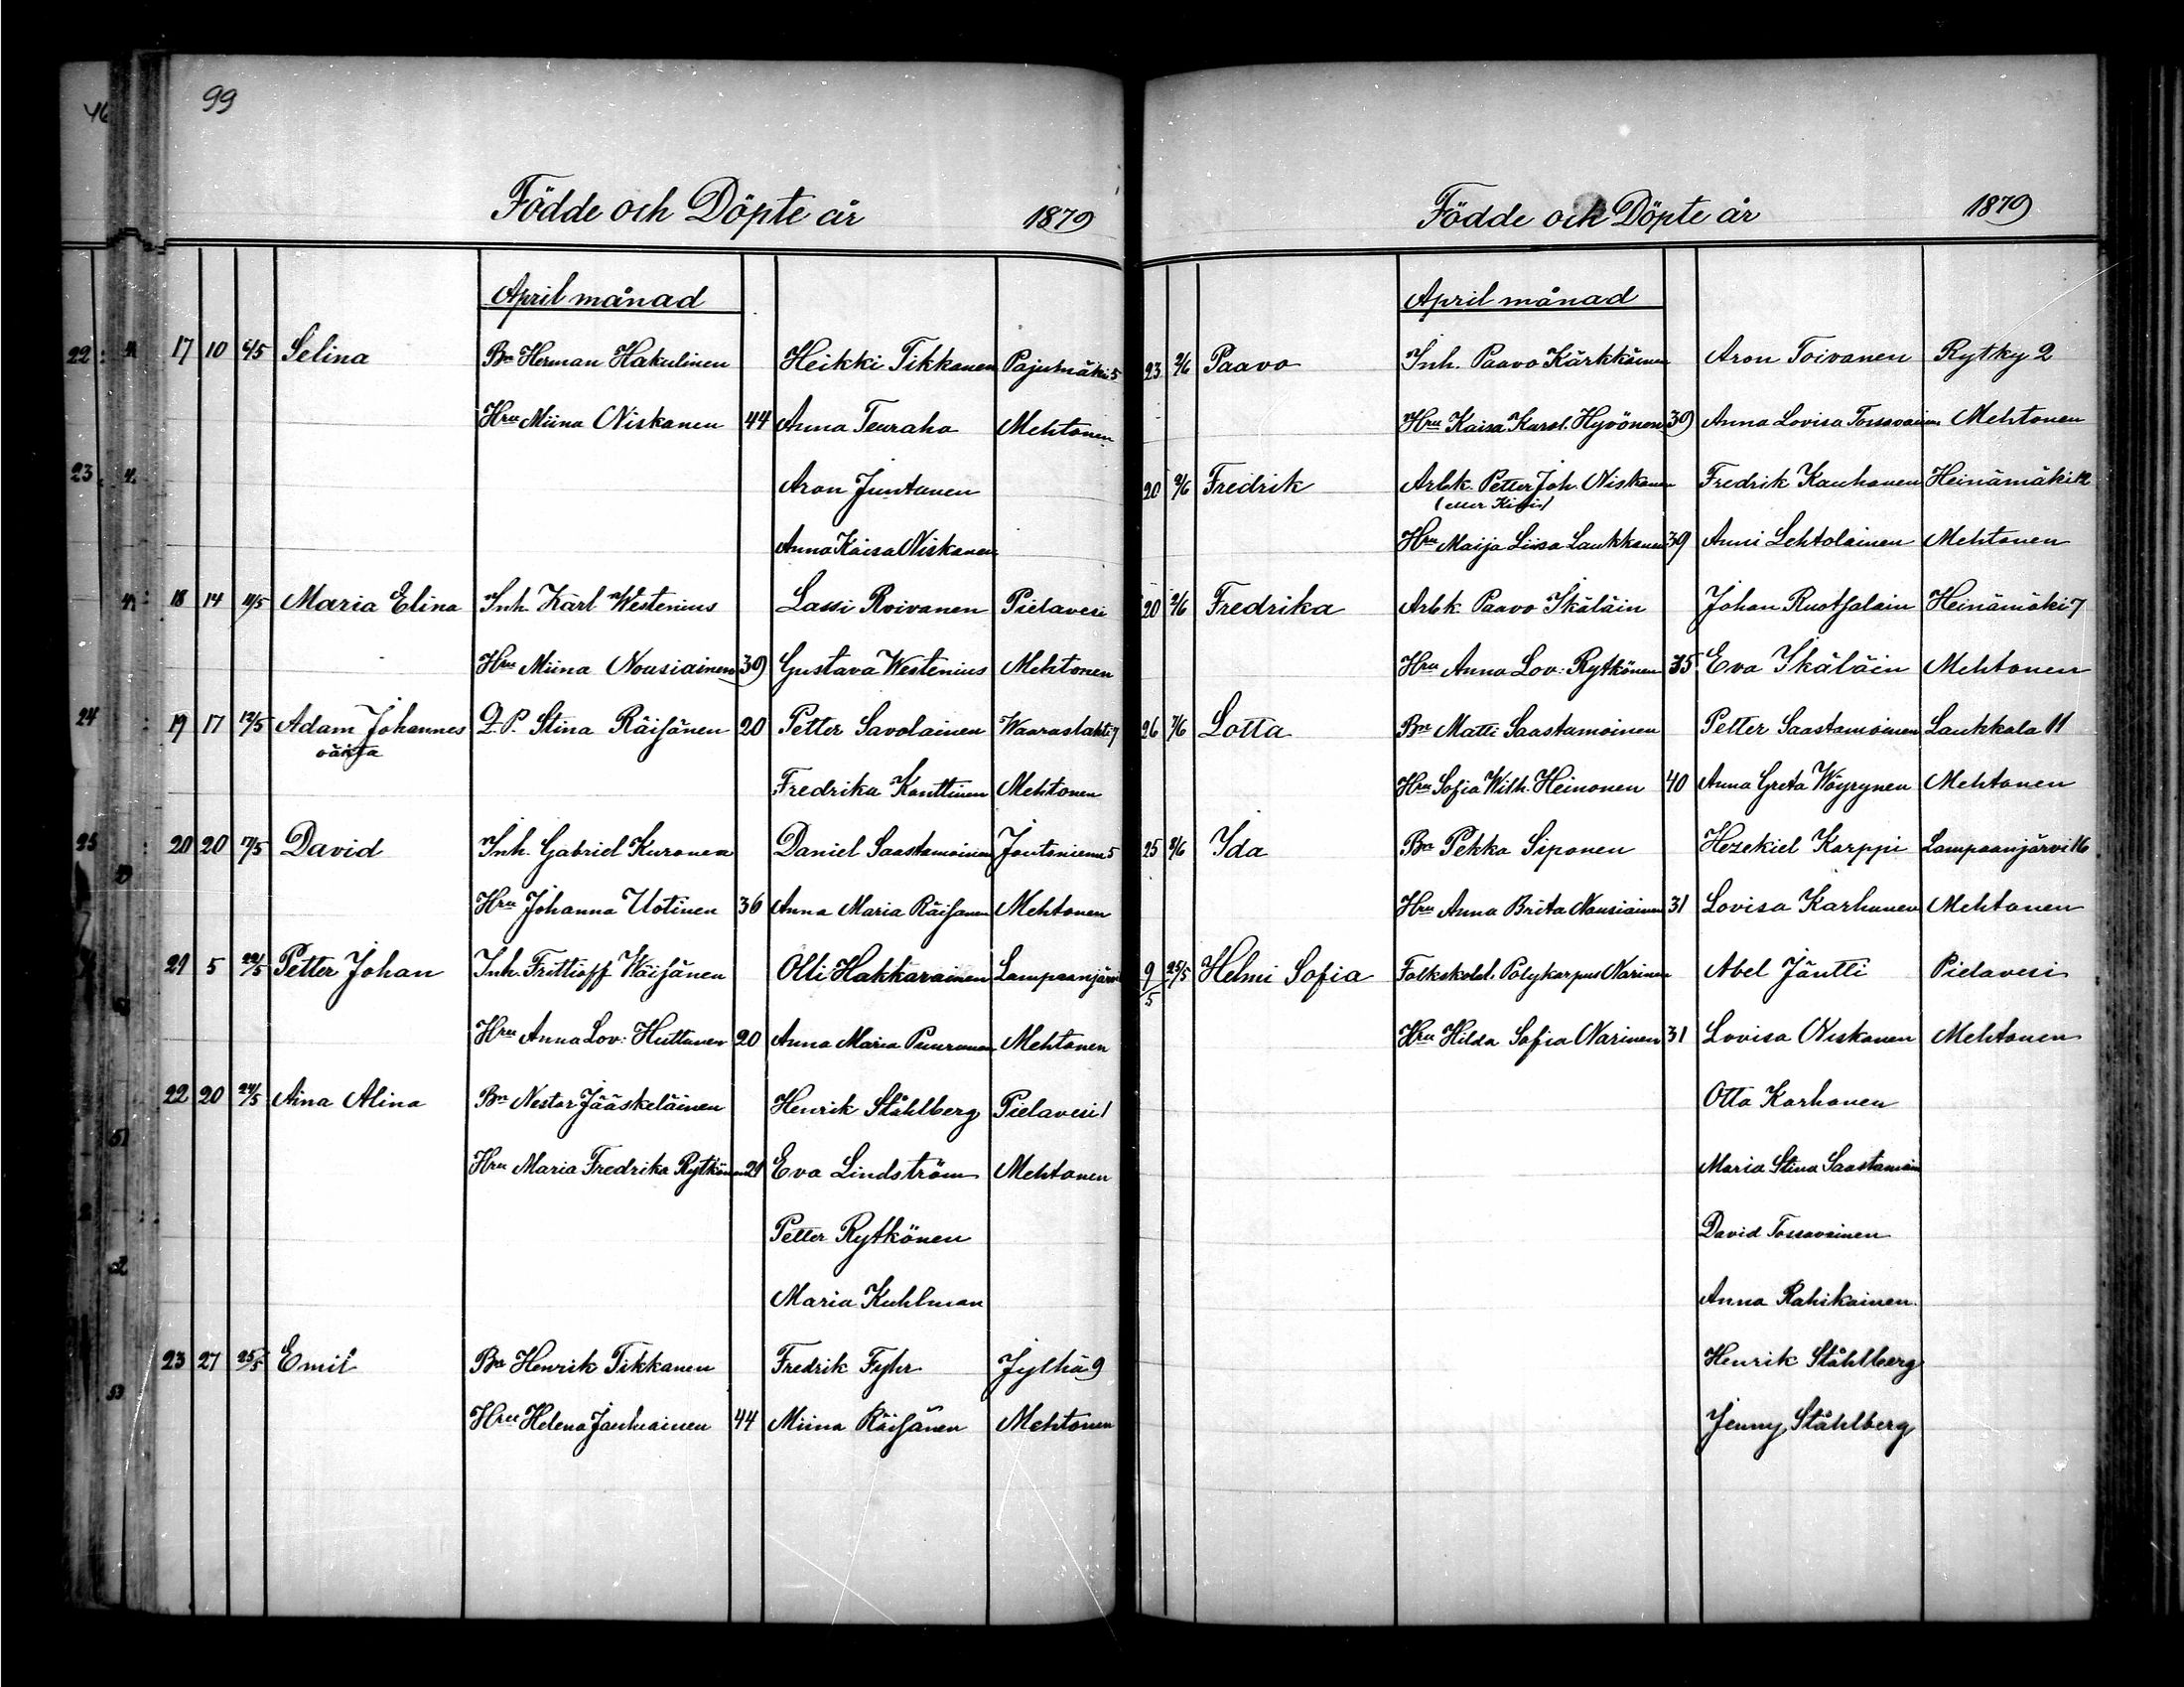 99
Födde och Döpte år 1879
April månad
17 10 4/5 Selina Bn Herman Hakulinen Heikki Tikkanen Pajumäki 5
Hru Miina Niskanen 44 Anna Teuraho Mehtonen
Aron Juntunen
Anna Kaisa Niskanen
18 14 11/5 Maria Elina Inh. Karl Westenius Lassi Roivanen Pielavesi
Hru Miina Nousiainen 39 Gustava Westenius Mehtonen
19 17 12/5 Adam Johannes Q.P. Stina Räisänen 20 Petter Savolainen Waaraslahti 7
oäkta Fredrika Konttinen Mehtonen
20 20 17/5 David Inh. Gabriel Kuronen Daniel Saastamoinen Joutsniemi 5
Hru Johanna Uotinen 36 Anna Maria Räisänen Mehtonen
21 5 22/5 Petter Johan Inh. Frittioff Wäisänen Olli Hakkarainen Lampaanjärvi
Hru Anna Lov: Huttunen 20 Anna Maria Puurunen Mehtonen
22 20 24/5 Aina Alina Bn Nestor Jääskeläinen Henrik Ståhlberg Pielavesi 1
Hru Maria Fredrika Rytkönen 21 Eva Lindström Mehtonen
Petter Rytkönen
Maria Kuhlman
23 27 25/5 Emil Bn Henrik Tikkanen Fredrik Fyhr Jylhä 9
Hru Helena Jauhiainen 44 Miina Räisänen Mehtonen
Födde och Döpte år 1879
April månad
23 2/6 Paavo Inh. Paavo Kärkkäinen Aron Toivanen Rytky 2
Hru Kaisa Karol. Hyvönen 39 Anna Lovisa Tossavainen Mehtonen
20 2/6 Fredrik Arbk. Petter Joh. Niskanen Fredrik Kauhanen Heinämäki 12
Hru Maija Liisa Laukkanen 39 Anni Lehtolainen Mehtonen
20 2/6 Fredrika Arbk. Paavo Ikäläin Johan Ruotsalain Heinämäki 7
Hru Anna Lov: Rytkönen 35 Eva Ikäläin Mehtonen
26 7/6 Lotta Bn Matti Saastamoinen Petter Saastamoinen Laukkala 11
Hru Sofia Wilh. Heinonen 40 Anna Greta Wäyrynen Mehtonen
25 8/6 Ida Bn Pekka Siponen Hezekiel Karppi Lampaanjärvi 16
Hru Anna Brita Nousiainen 31 Lovisa Karhunen Mehtonen
9/5 25/5 Helmi Sofia Folkskolel. Polykarpus Narinen Abel Jäntti Pielavesi
Hru Hilda Sofia Narinen 31 Lovisa Niskanen Mehtonen
Otto Korhonen
Maria Stina Saastamoin
David Tossavainen
Anna Rahikainen
Henrik Ståhlberg
Jenny Ståhlberg